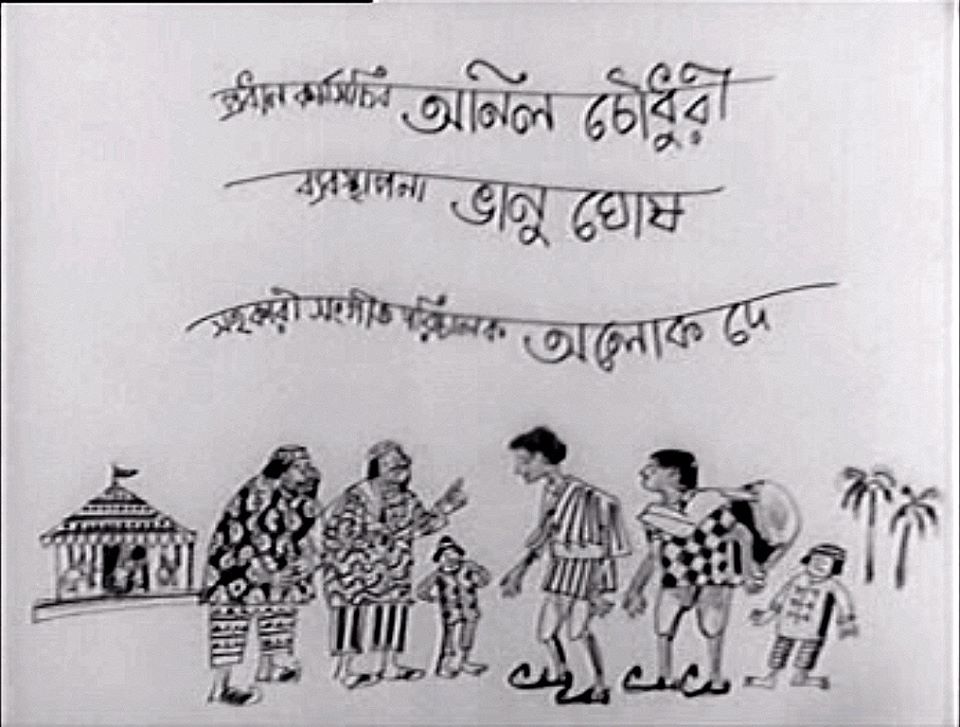 প্রধান কর্মসচিব অনিল চৌধুরী
ব্যবস্থাপনা ভানু ঘোষ
সহকারী সংগীত পরিচালক অলোক দে